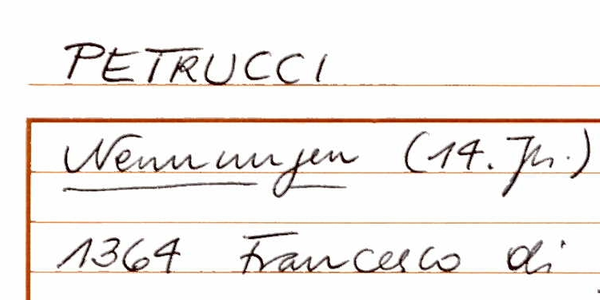 PETRUCCI
Nennungen (14. Jh.)
1364 Francesco di